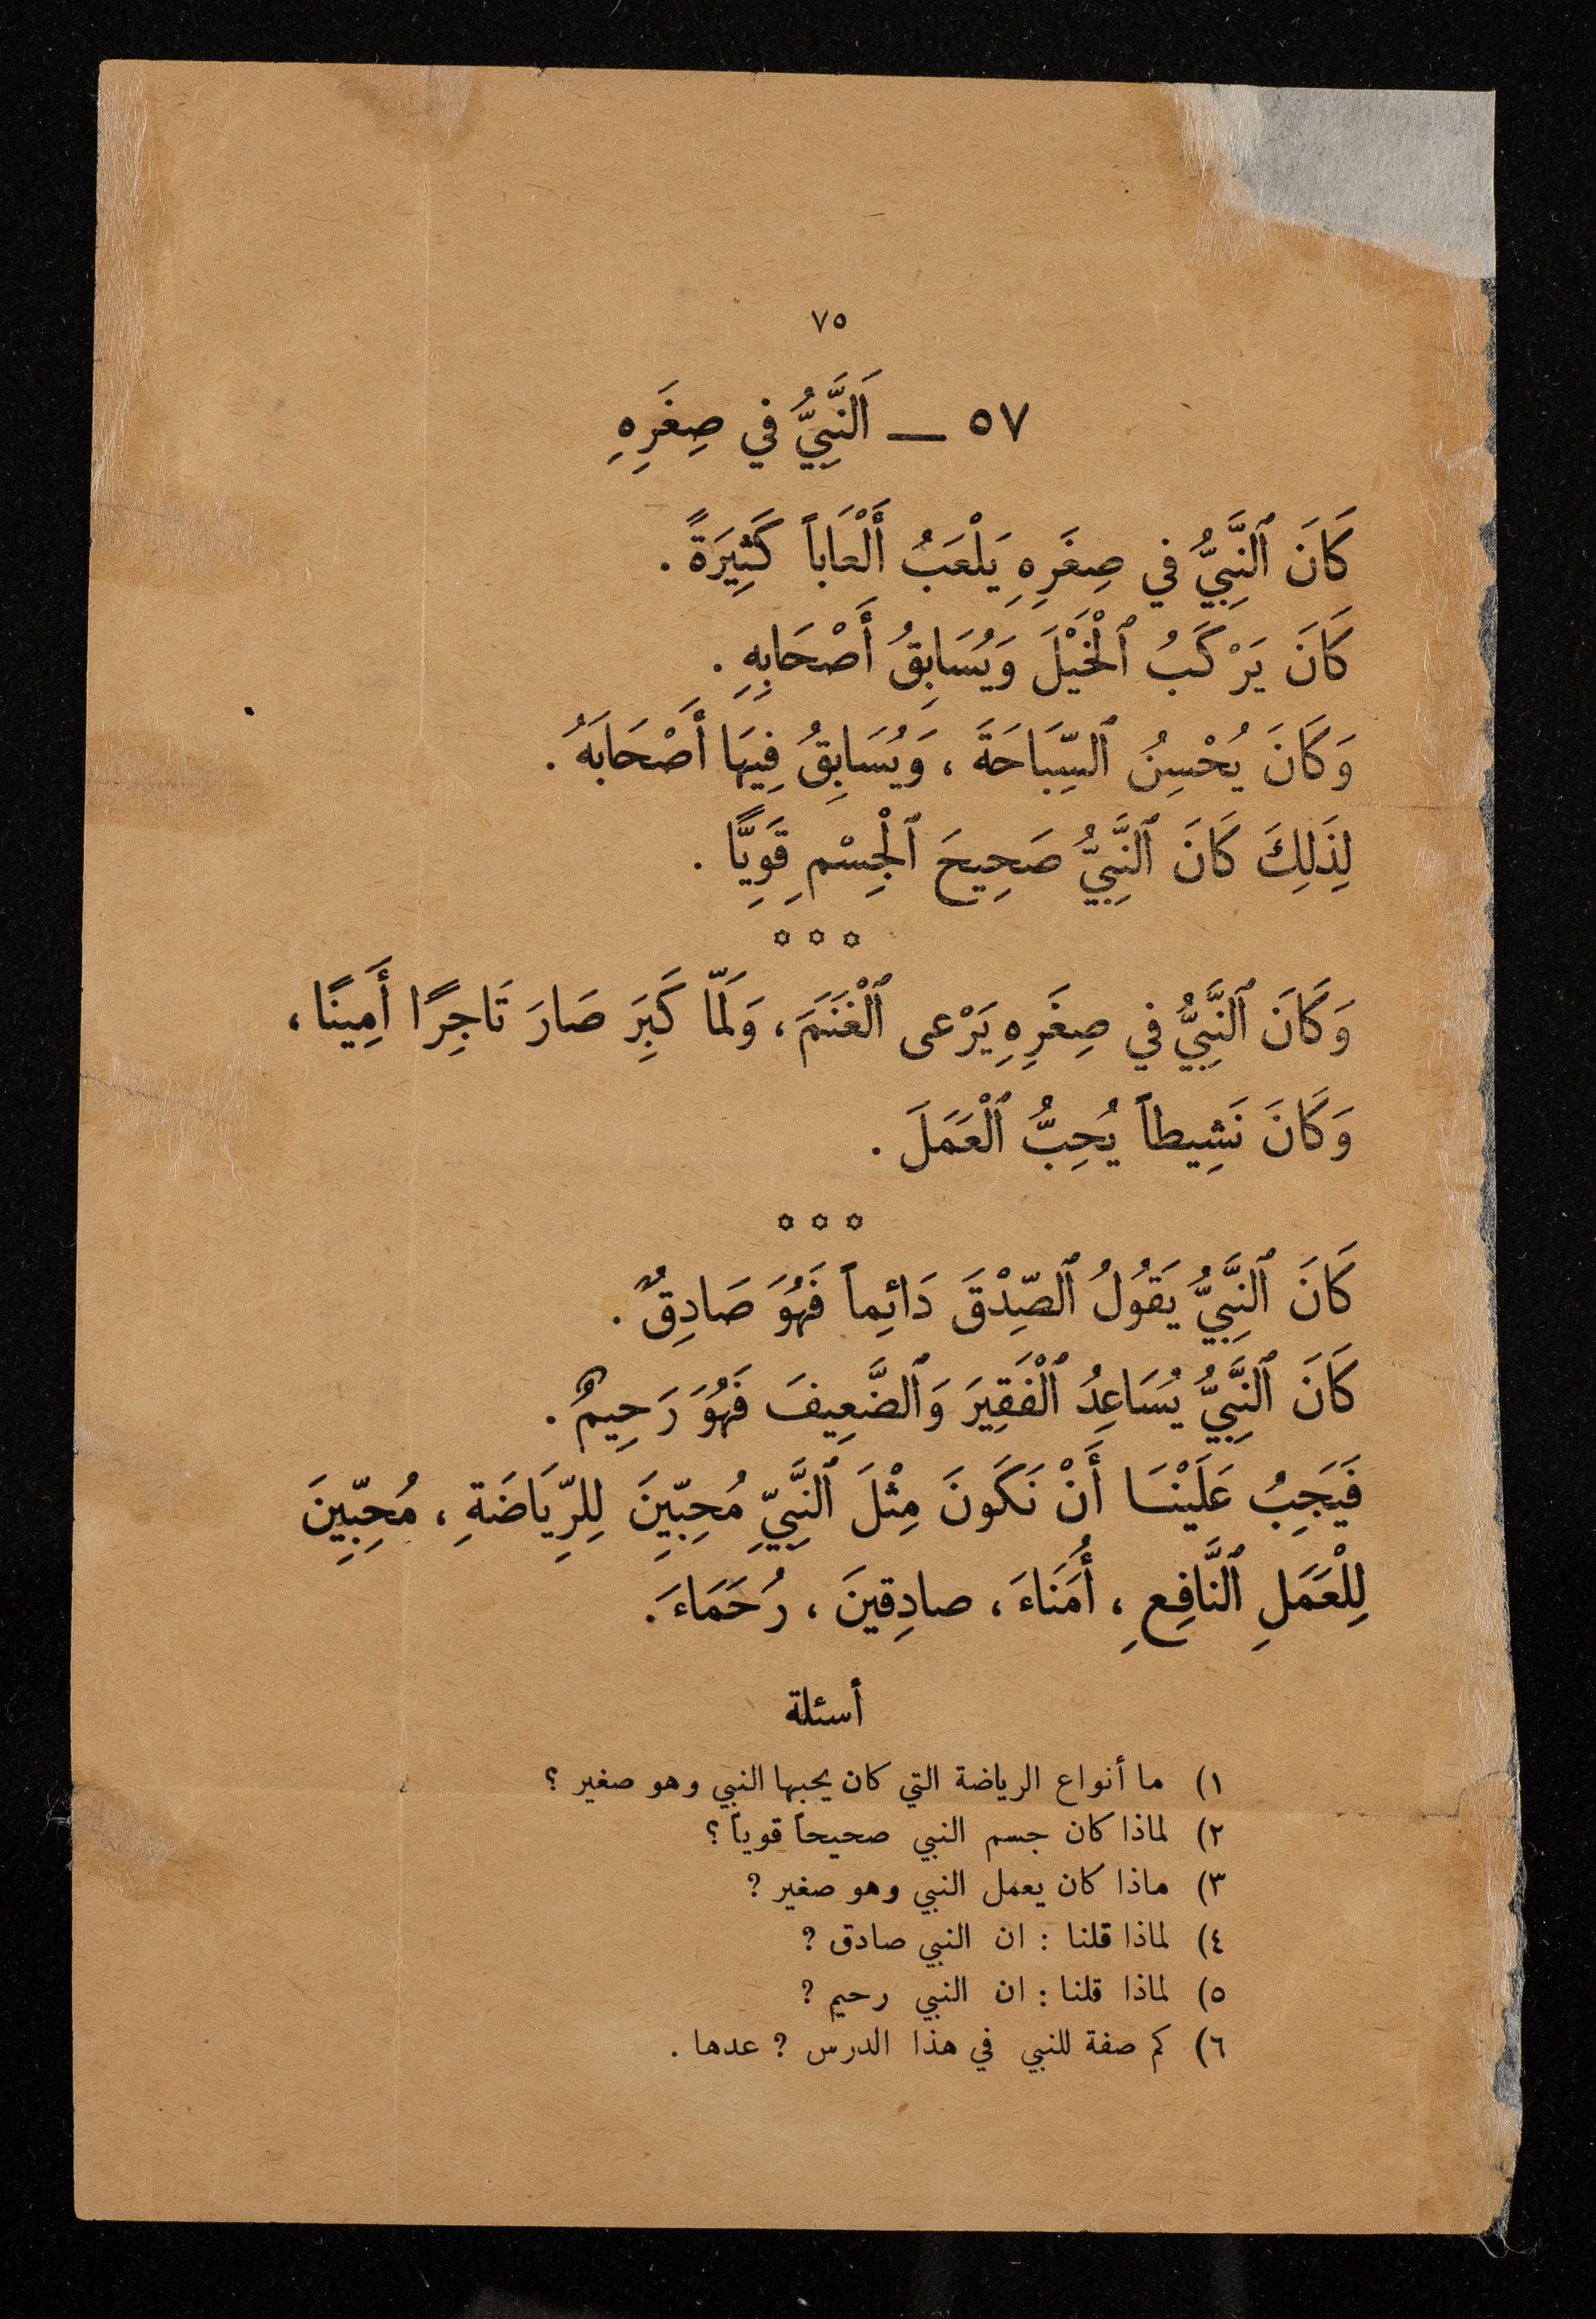 ٧٥
٥٧ — اَلنَّبِيُّ في صِغَرِهِ
كَانَ ٱلنَّبِيُّ في صِغَرِهِ يَلْعَبُ أَلْعَاباً كَثِيرَةً .
كَانَ يَرْكَبُ ٱلْخَيْلَ وَيُسَابِقُ أَصْحَابِهِ .
وَكَانَ يُحْسِنُ ٱلسِّبَاحَةَ ، وَيُسَابِقُ فِيهَا أَصْحَابَهُ .
لِذَلِكَ كَانَ ٱلنَّبِيُّ صَحِيحَ ٱلْجِسْمِ قَوِيًّا .
✡ ✡ ✡
وَكَانَ ٱلنَّبِيُّ في صِغَرِهِ يَرْعى ٱلْغَنَمَ ، وَلَمّا كَبِرَ صَارَ تَاجِرًا أَمِينًا ،
وَكَانَ نَشِيطاً يُحِبُّ ٱلْعَمَلَ .
✡ ✡ ✡
كَانَ ٱلنَّبِيُّ يَقُولُ ٱلصِّدْقَ دَائِماً فَهُوَ صَادِقٌ .
كَانَ ٱلنَّبِيُّ يُسَاعِدُ ٱلْفَقِيرَ وَٱلضَّعِيفَ فَهُوَ رَحِيمٌ .
فَيَجِبُ عَلَيْنَا أَنْ نَكَونَ مِثْلَ ٱلنَّبِيِّ مُحِبِّينَ لِلرِّيَاضَةِ ، مُحِبِّينَ
لِلْعَمَلِ ٱلنَّافِعِ ، أُمَنَاءَ ، صادِقينَ ، رُحَمَاءَ .
أسئلة
١) ما أنواع الرياضة التي كان يحبها النبي وهو صغير ؟
٢) لماذا كان جسم النبي صحيحاً قوياً ؟
٣) ماذا كان يعمل النبي وهو صغير ؟
٤) لماذا قلنا : ان النبي صادق ؟
٥) لماذا قلنا : ان النبي رحيم ؟
٦) كم صفة للنبي في هذا الدرس ؟ عدها .